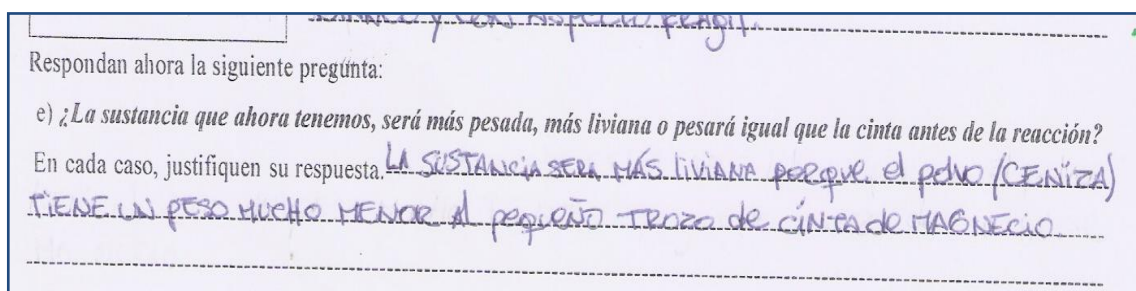 y con aspecto frágil.
Respondan ahora la siguiente pregunta:
e) ¿La sustancia que ahora tenemos, será más pesada, más liviana o pesará igual que la cinta antes de la reacción?
En cada caso, justifiquen su respuesta. LA SUSTANCIA SERA MÁS liviANA porque el polvo (CENiZA)
TiENE UN PESO MUCHO MENOR Al pequeÑO TROZO de CíNTA de MAGNECio